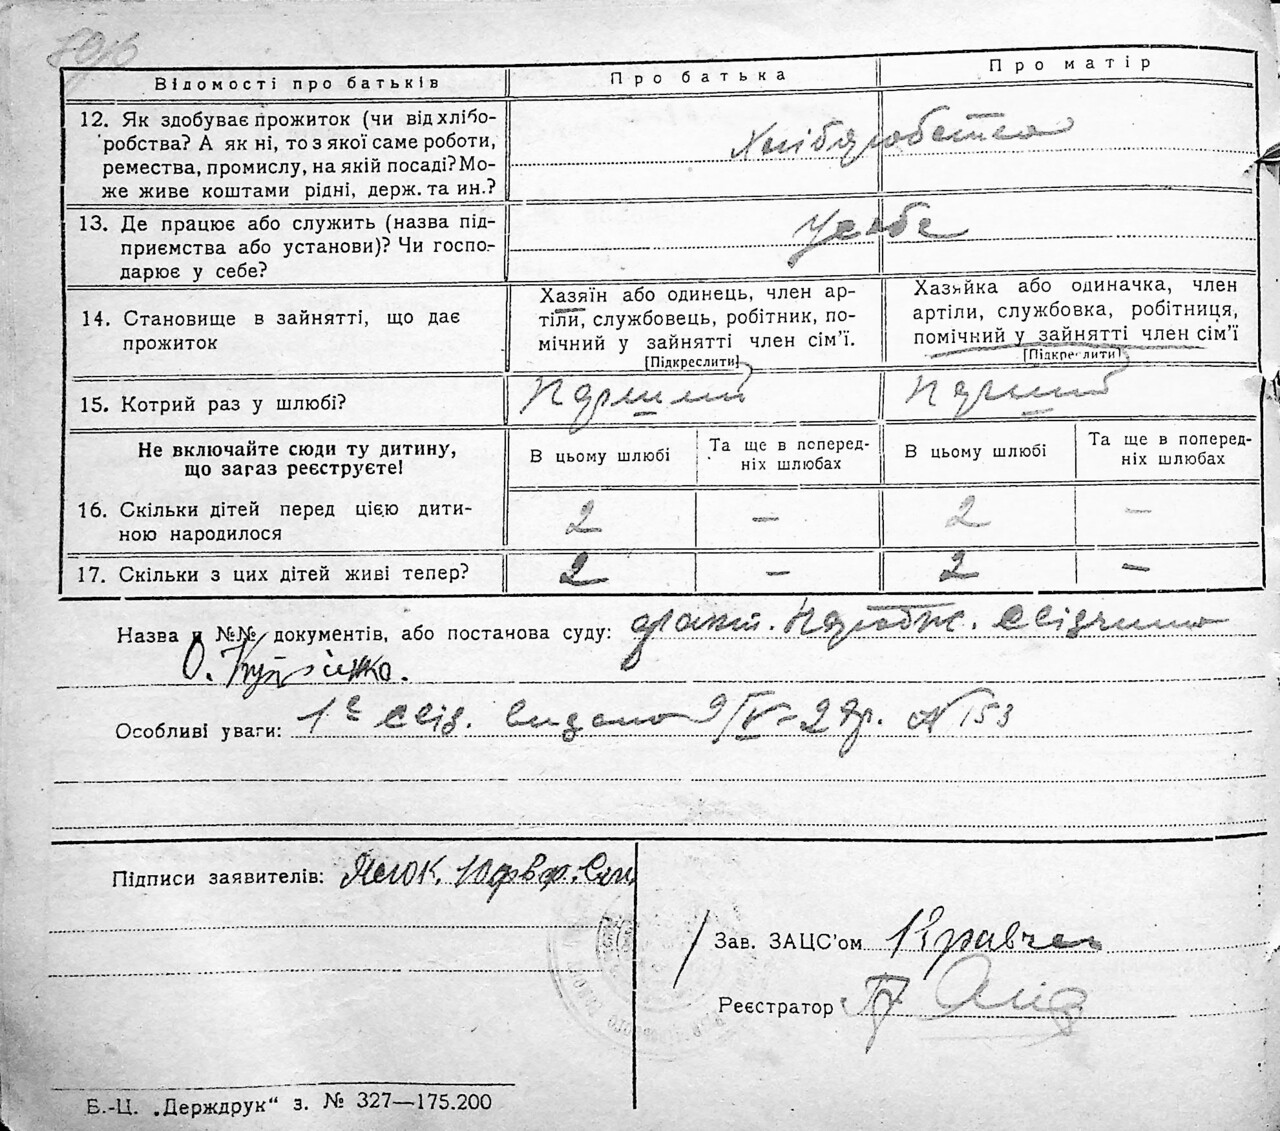 Відомості про батьків
Про батька
Про матір
12. Як здобуває прожиток (чи від хлібо-
робства? А як ні, то з якої саме роботи,
ремества, промислу, на якій посаді? Мо-
же живе коштами рідні, держ. та ин.?
Хліборобство
13. Де працює або служить (назва під-
приємства або установи)? Чи госпо-
дарює у себе?
У себе
14. Становище в зайнятті, що дає
прожиток
Хазяїн або одинець, член ар-
тіли, службовець, робітник, по-
мічний у зайнятті член сім'ї.
[Підкреслити]
Хазяйка або одиначка, член
артіли, службовка, робітниця,
помічний у зайнятті член сім'ї
[Підкреслити]
15. Котрий раз у шлюбі?
Перший
Перший
Не включайте сюди ту дитину,
що загаз реєструєте!
В цьому шлюбі
Та ще в поперед-
ніх шлюбах
В цьому шлюбі
Та ще в поперед-
ніх шлюбах
16. Скільки дітей перед цією дити-
ною народилося
2 – 2 –
17. Скільки з цих дітей живі тепер?
2 – 2 –
Назва й №№ документів, або постанова суду: факт. народж.
О.
Особливі уваги: 1е свід. видано 9/IV-29р. № 153
Підписи заявителів:
Зав. ЗАЦС'ом Кравчен
Реєстратор
Б.-Ц. „Держдрук“ з. № 327—175.200